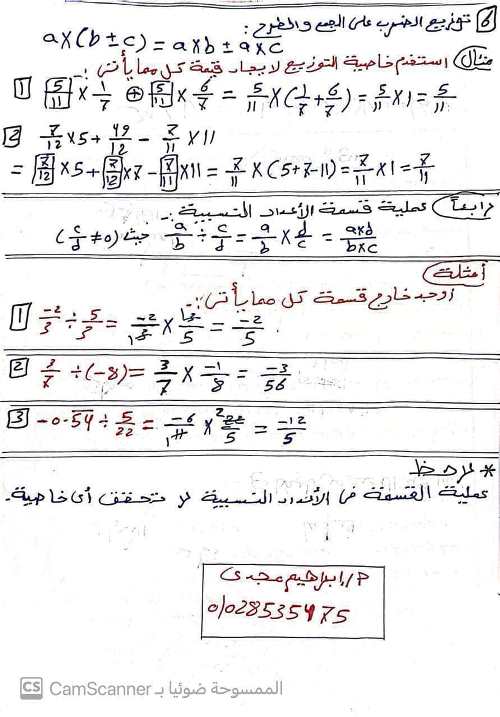 6 توزيع الضرب على الجمع والطرح:
a×(b±c) = a×b ± a×c
مثال استخدم خاصية التوزيع لإيجاد قيمة كل مما يأتى:-
1 5/11 × 1/7 + 5/11 × 6/7 = 5/11 × (1/7 + 6/7) = 5/11 × 1 = 5/11
2 7/12 × 5 + 49/12 - 7/11 × 11
= 7/12 × 5 + 7/12 × 7 - 7/11 × 11 = 7/11 × (5+7-11) = 7/11 × 1 = 7/11
رابعاً عملية قسمة الأعداد النسبية:-
a/b ÷ c/d = a/b × d/c = a×d/b×c حيث (c/d ≠ 0)
أمثلة
أوجد خارج قسمة كل مما يأتى:-
1 -2/3 ÷ 5/3 = -2/3 × 3/5 = -2/5
2 3/7 ÷ (-8) = 3/7 × -1/8 = -3/56
3 -0.54 ÷ 5/22 = -6/11 × 22/5 = -12/5
* لاحظ
عملية القسمة فى الأعداد النسبية لا تحقق أى خاصية.
م/ إبراهيم مجدى
01028535475
CS CamScanner الممسوحة ضوئيا بـ